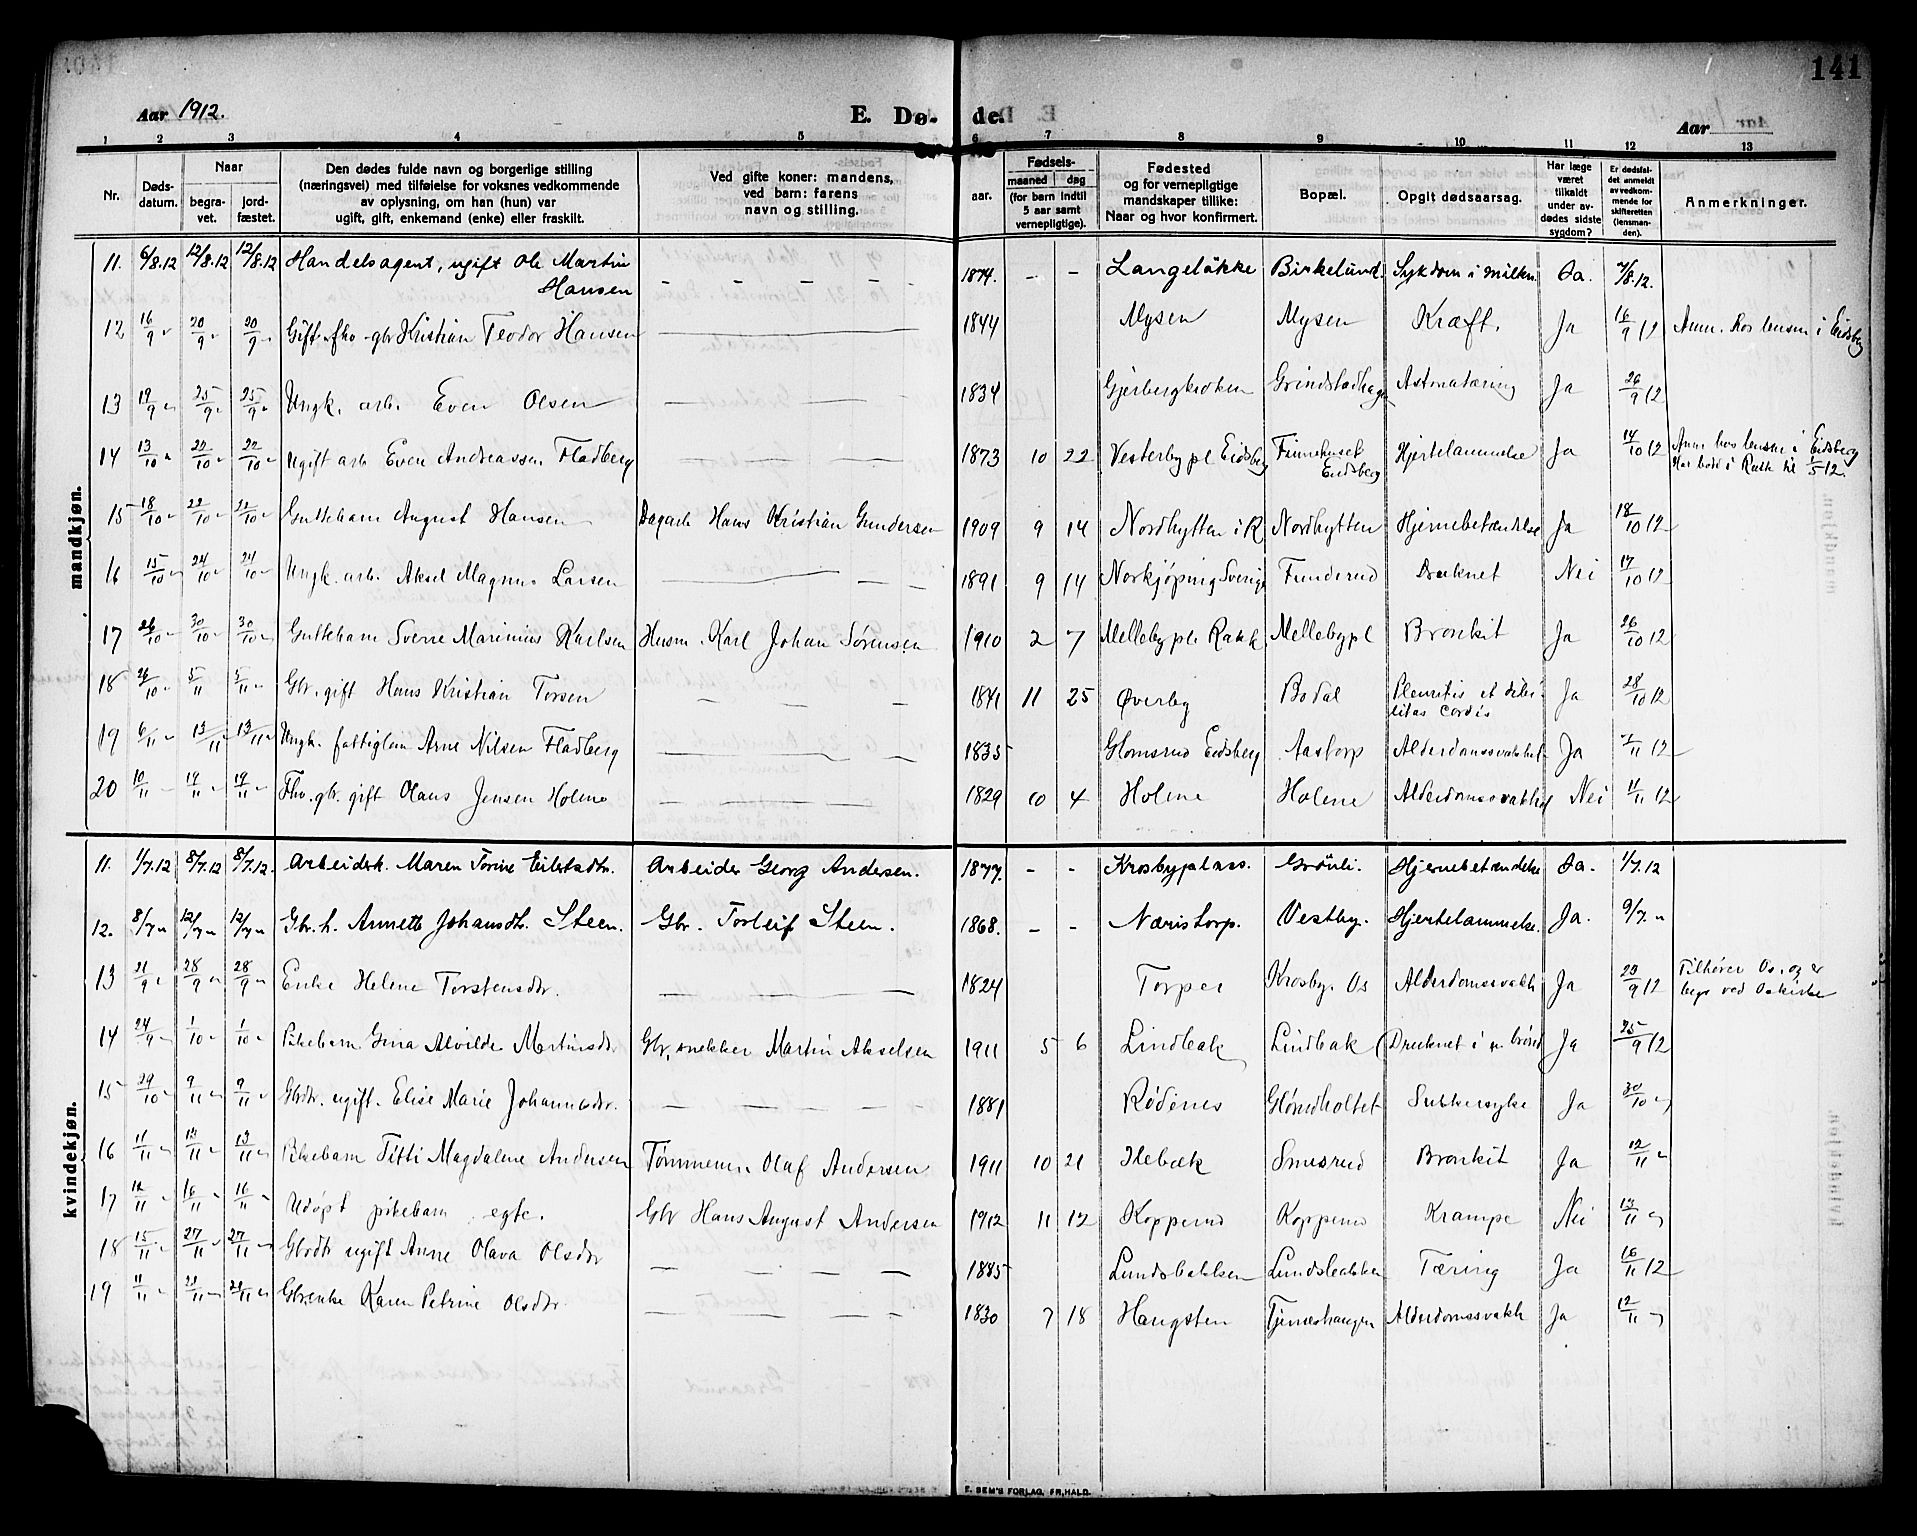 141
Aar 1912.
E. Dø- de.
Aar
1 2 3 4 5 6 7 8 9 10 11 12 13
Nr. Døds-datum. Naar begra-vet. jord-fæstet. Den dødes fulde navn og borgerlige stilling (næringsvei) med tilføielse for voksnes vedkommende av oplysning, om han (hun) var ugift, gift, enkemand (enke) eller fraskilt. Ved gifte koner: mandens, ved barn: farens navn og stilling. Fødsels- aar. maaned dag (for barn indtil 5 aar samt vernepligtige). Fødested og for vernepligtige mandskaper tillike: Naar og hvor konfirmert. Bopæl. Opgit dødsaarsag. Har læge været tilkaldt under av-dødes sidste sygdom? Er dødsfal-det anmeldt av vedkom-mende for skifteretten (lensman-den). Anmerkninger.
mandkjøn.
11. 6/8.12 12/8.12 12/8.12 Handelsagent, ugift Ole Martin Hansen – – – – – 1874. – – Langeløkke Birkelund. Sykdom i milten Ja. 7/8.12.
12 16/9 " 20/9 " 20/9 " Gift fhv. gbr Kristian Teodor Hansen 1844 Mysen Mysen Kræft. Ja 16/9 12 Anm. hos lensm i Eidsberg
13 19/9 " 25/9 " 25/9 " Ungk. arb. Even Olsen 1834 Gjerbergkroken Grindstadhagen Astmatæring Ja 26/9 12
14 13/10 " 22/10 " 22/10 " Ugift arb Even Andreassen Fladberg 1873 10 22 Vesterby pl Eidsberg Finnehuset Eidsberg Hjertelammelse Ja 14/10 12 Anm hos lensm i Eidsberg Har bodd i Rakk til 1/5 12.
15 18/10 " 22/10 " 22/10 " Guttebarn August Hansen Dagarb Hans Kristian Gundersen 1909 9 14 Nordhytten i R Nordhytten Hjernebetændelse Ja 18/10 12
16 15/10 " 24/10 " 24/10 " Ungk. arb. Aksel Magnus Larsen 1891 9 14 Norkjøping Sverige Funderud Druknet Nei 17/10 12
17 26/10 " 30/10 " 30/10 " Guttebarn Sverre Marinius Karlsen Husm. Karl Johan Sørensen 1910 2 7 Melleby pl. Rakk. Mellebypl Bronkit Ja 26/10 12
18 26/10 " 5/11 " 5/11 " Gbr. gift Hans Kristian Torsen – – – 1841 11 25 Øverby Bodal Pleuritis et debilitas cordis Ja 28/10 12
19 6/11 " 13/11 " 13/11 " Ungk. fattiglem Arne Nilsen Fladberg 1835 Glomsrud Eidsberg Aastorp Alderdomssvakhet Ja 7/11 12
20 10/11 " 19/11 " 19/11 " Fhv. gbr. gift Olaus Jensen Holene 1829 10 4 Holene Holene Alderdomssvakhet Nei 11/11 12
kvindekjøn.
11. 1/7.12 8/7.12 8/7.12. Arbeiderk. Maren Torine Eilertsdtr. Arbeider Georg Andersen. 1877. – – Krosbyplass. Grönli. Hjernebetændelse Ja. 1/7.12
12. 8/7 " 12/7 " 12/7 " Gbr. h. Annette Johansdtr. Steen. Gbr. Torleif Steen. 1868. – – Næristorp. Vestby. Hjertelammelse. Ja. 9/7 "
13 21/9 " 28/9 " 28/9 " Enke Helene Torstensdtr. 1824 Torper Krosby. Os Alderdomssvakh Ja 23/9 12 Tilhører Os, og er begr ved Os kirke
14 24/9 " 1/10 " 1/10 " Pikebarn Gina Alvilde Martinsdtr Gbr, snekker Martin Akselsen 1911 5 6 Lindbak Lindbak Druknet i en brönd Ja 25/9 12
15 29/10 " 9/11 " 9/11 " Gbdtr. ugift. Elise Marie Johannesdtr. – – – – – 1881 Rødenes Gløndholtet Sukkersyke Ja 30/10 "
16 11/11 " 13/11 " 13/11 " Pikebarn Titti Magdalene Andersen Tømmerm. Olaf Andersen 1911 10 21 Hebæk Smesrud Bronkit Ja 12/11 "
17 12/11 " 16/11 " 16/11 " Udøpt pikebarn, egte. Gbr Hans August Andersen 1912 11 12 Kopperud Kopperud Krampe Nei 13/11 "
18 15/11 " 27/11 " 27/11 " Gbrdtr ugift Anne Olava Olsdtr – – – – – 1885 Lundsbakken Lundsbakken Tæring Ja 16/11 12
19 11/11 " 23/11 " 23/11 " Gbr.enke Karen Petrine Olsdtr. 1830 7 18 Haugsten Tjernshaugen Alderdomssvakh Ja 12/11 "
E. SEM'S FORLAG, FR.HALD.